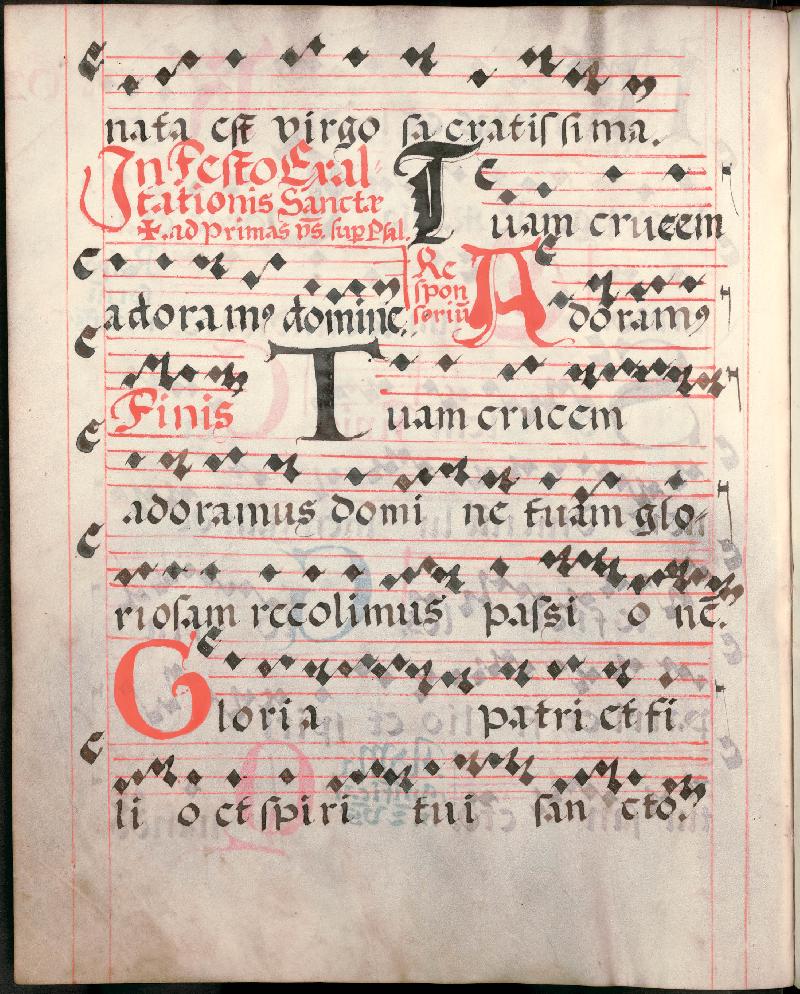 nata est virgo sacratissima.
In Festo Exal-
tationis Sanctæ
✠. ad primas vs. sup Psal.
Tuam crucem
adoramꝰ domine.
Re
spon
soriũ
Adoramꝰ
Finis
Tuam crucem
adoramus domi ne tuam glo-
riosam recolimus passi o nẽ.
Gloria patri et fi.
li o et spiri tui san cto.